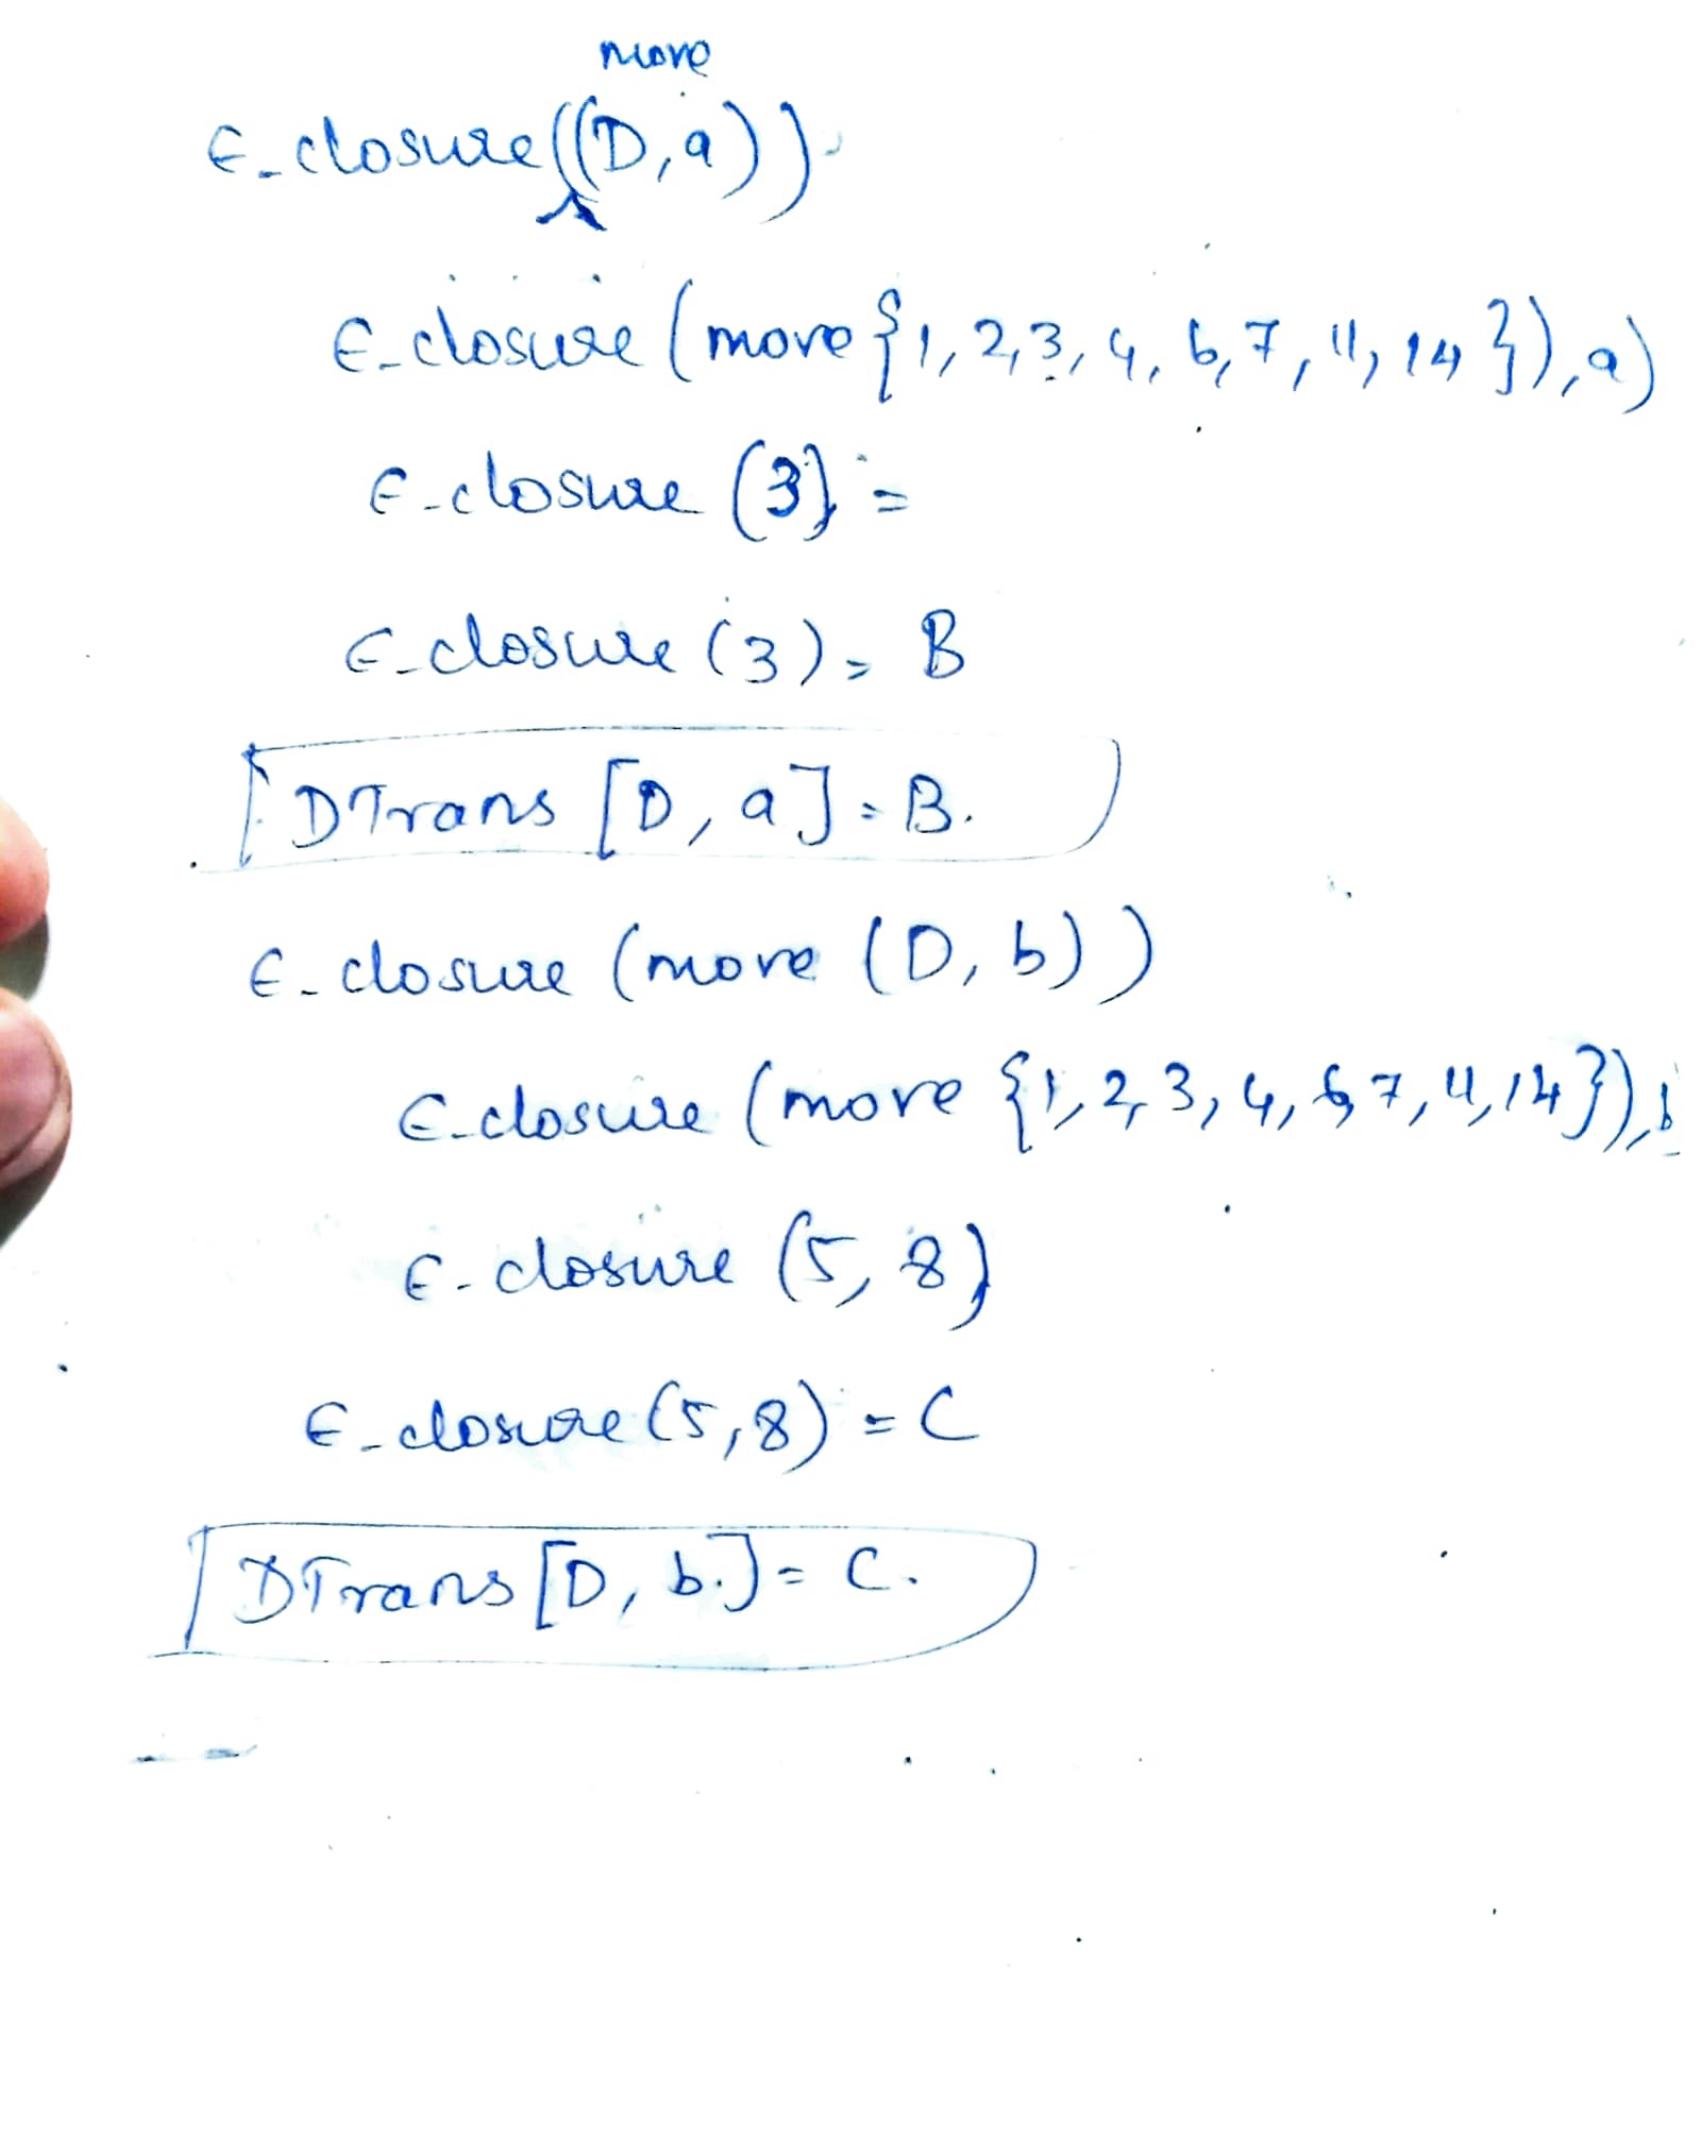 move
ϵ-closure((D,a))
ϵ-closure (move{1,2,3,4,6,7,11,14}),a)
ϵ-closure (3) =
ϵ-closure (3) = B
DTrans [D, a] = B.
ϵ-closure (move (D, b))
ϵ-closure (move {1,2,3,4,6,7,11,14}),b
ϵ-closure (5, 8)
ϵ-closure (5,8) = C
DTrans [D, b.] = C.